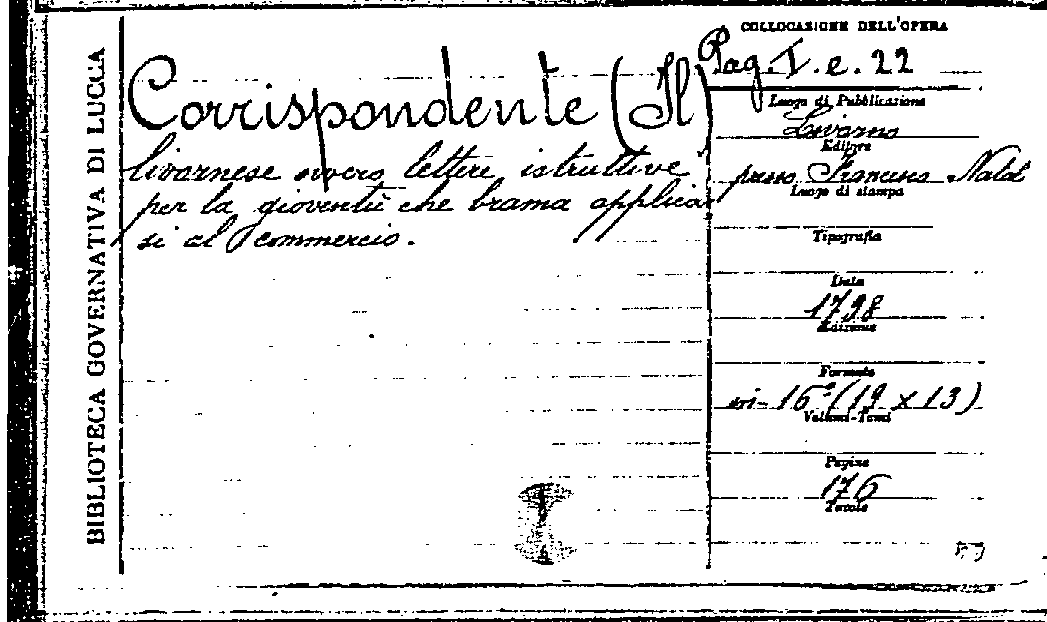 BIBLIOTECA GOVERNATIVA DI LUCCA
Corrispondente (Il)
livornese ovvero lettere istruttive
per la gioventù che brama applicar
si al commercio.
COLLOCAZIONE DELL'OPERA
Pag. I. e. 22
Luogo di Pubblicazione
Livorno
Editore
presso Francesco Natal
Luogo di stampa
Tipografia
Data
1798
Edizione
Formato
in-16° (19 x 13)
Volumi-Tomi
Pagine
176
Tavole